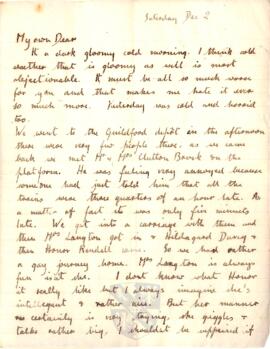 Saturday Dec 2
My own Dear
It a dark gloomy cold morning. I think cold
weather that is gloomy as well is most
objectionable. It must be all so much worse
for you and that makes me hate it ever
so much more. Yesterday was cold and horrid
too.
We went to the Guildford depôt in the afternoon
there were very few people there, as we came
back we met Mr & Mrs Clutton Brock on the
platform. He was feeling very annoyed because
someone had just told him that all the
trains were three quarters of an hour late. As
a matter of fact it was only five minutes
late. We got into a carriage with them and
then Mrs Langton got in Hildegard Davey &
then Honor Rendall came. So we had rather
a gay journey home. Mrs Langton is always
fun isn't she. I dont know what Honor
is really like but I always imagine she's
intelligent & rather nice. But her manner
is certainly is very trying, she giggles &
talks rather big. I shouldn't be surprised if